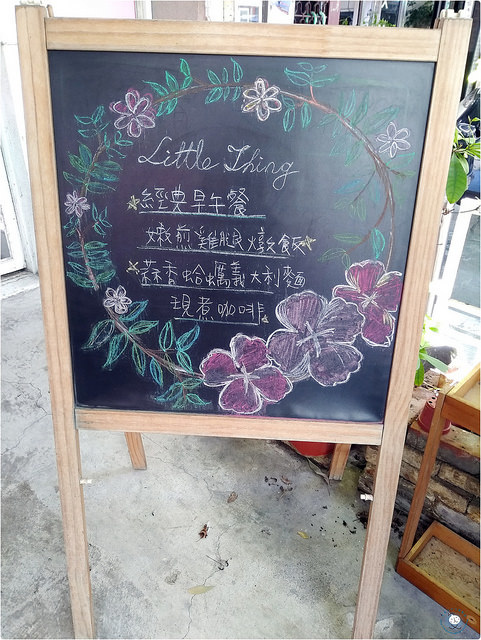 Little Thing
經典早午餐
嫩煎雞腿燉飯
蒜香蛤蠣義大利麵
現煮咖啡